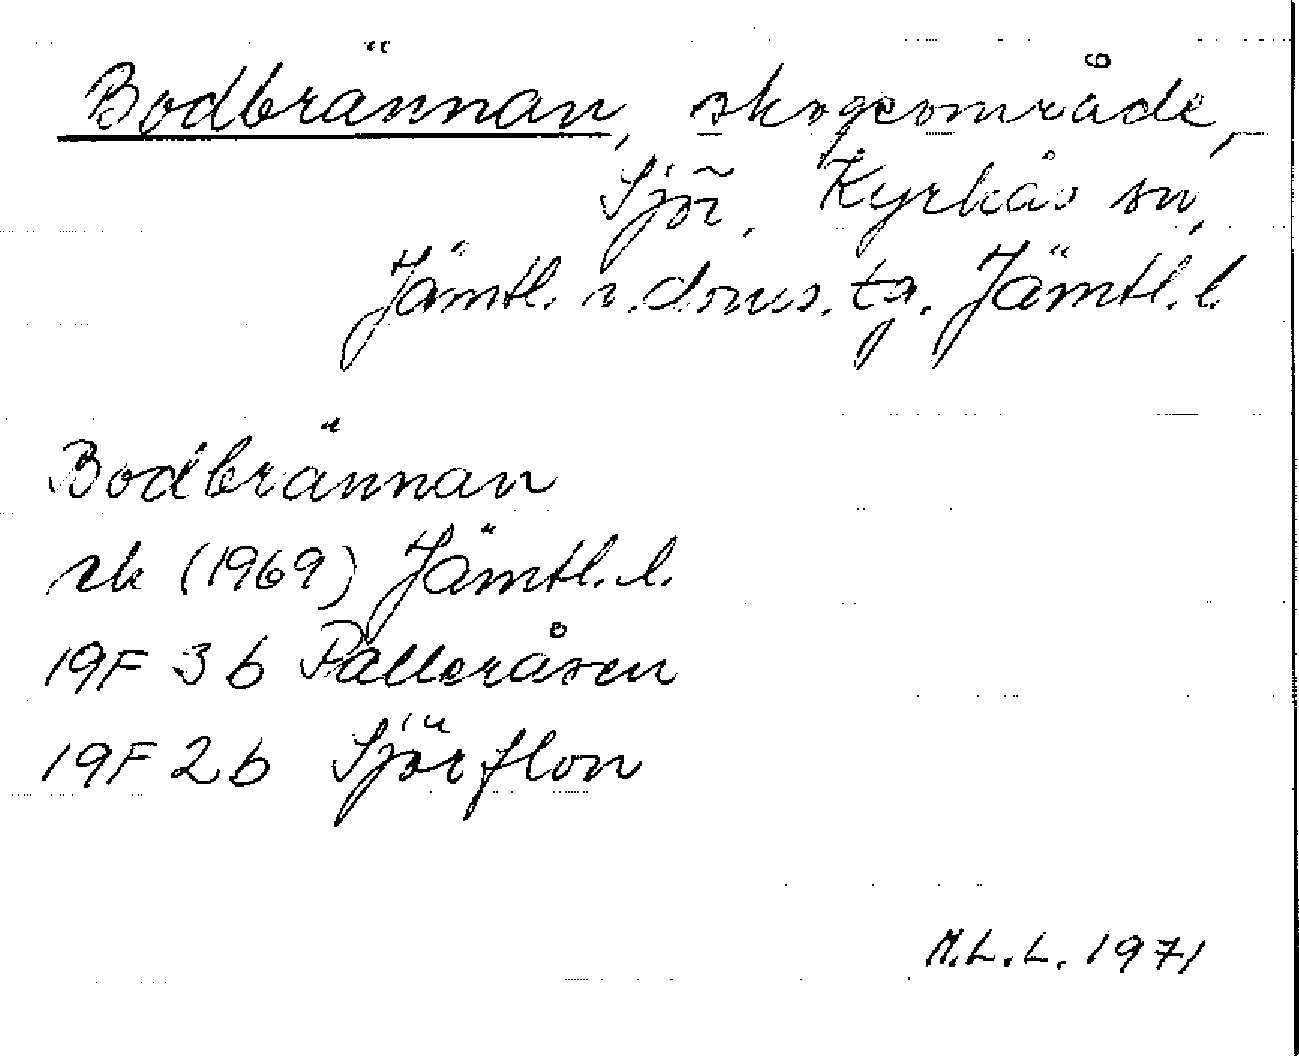 Bodbrännan, skogsområde,
Sjör, Kyrkås sn,
Jämtl. n. doms. tg. Jämtl. l.
Bodbrännan
rk (1969) Jämtl. l.
19F 3b Pålleråsen
19F 2b Sjörflon
M.L.L. 1971